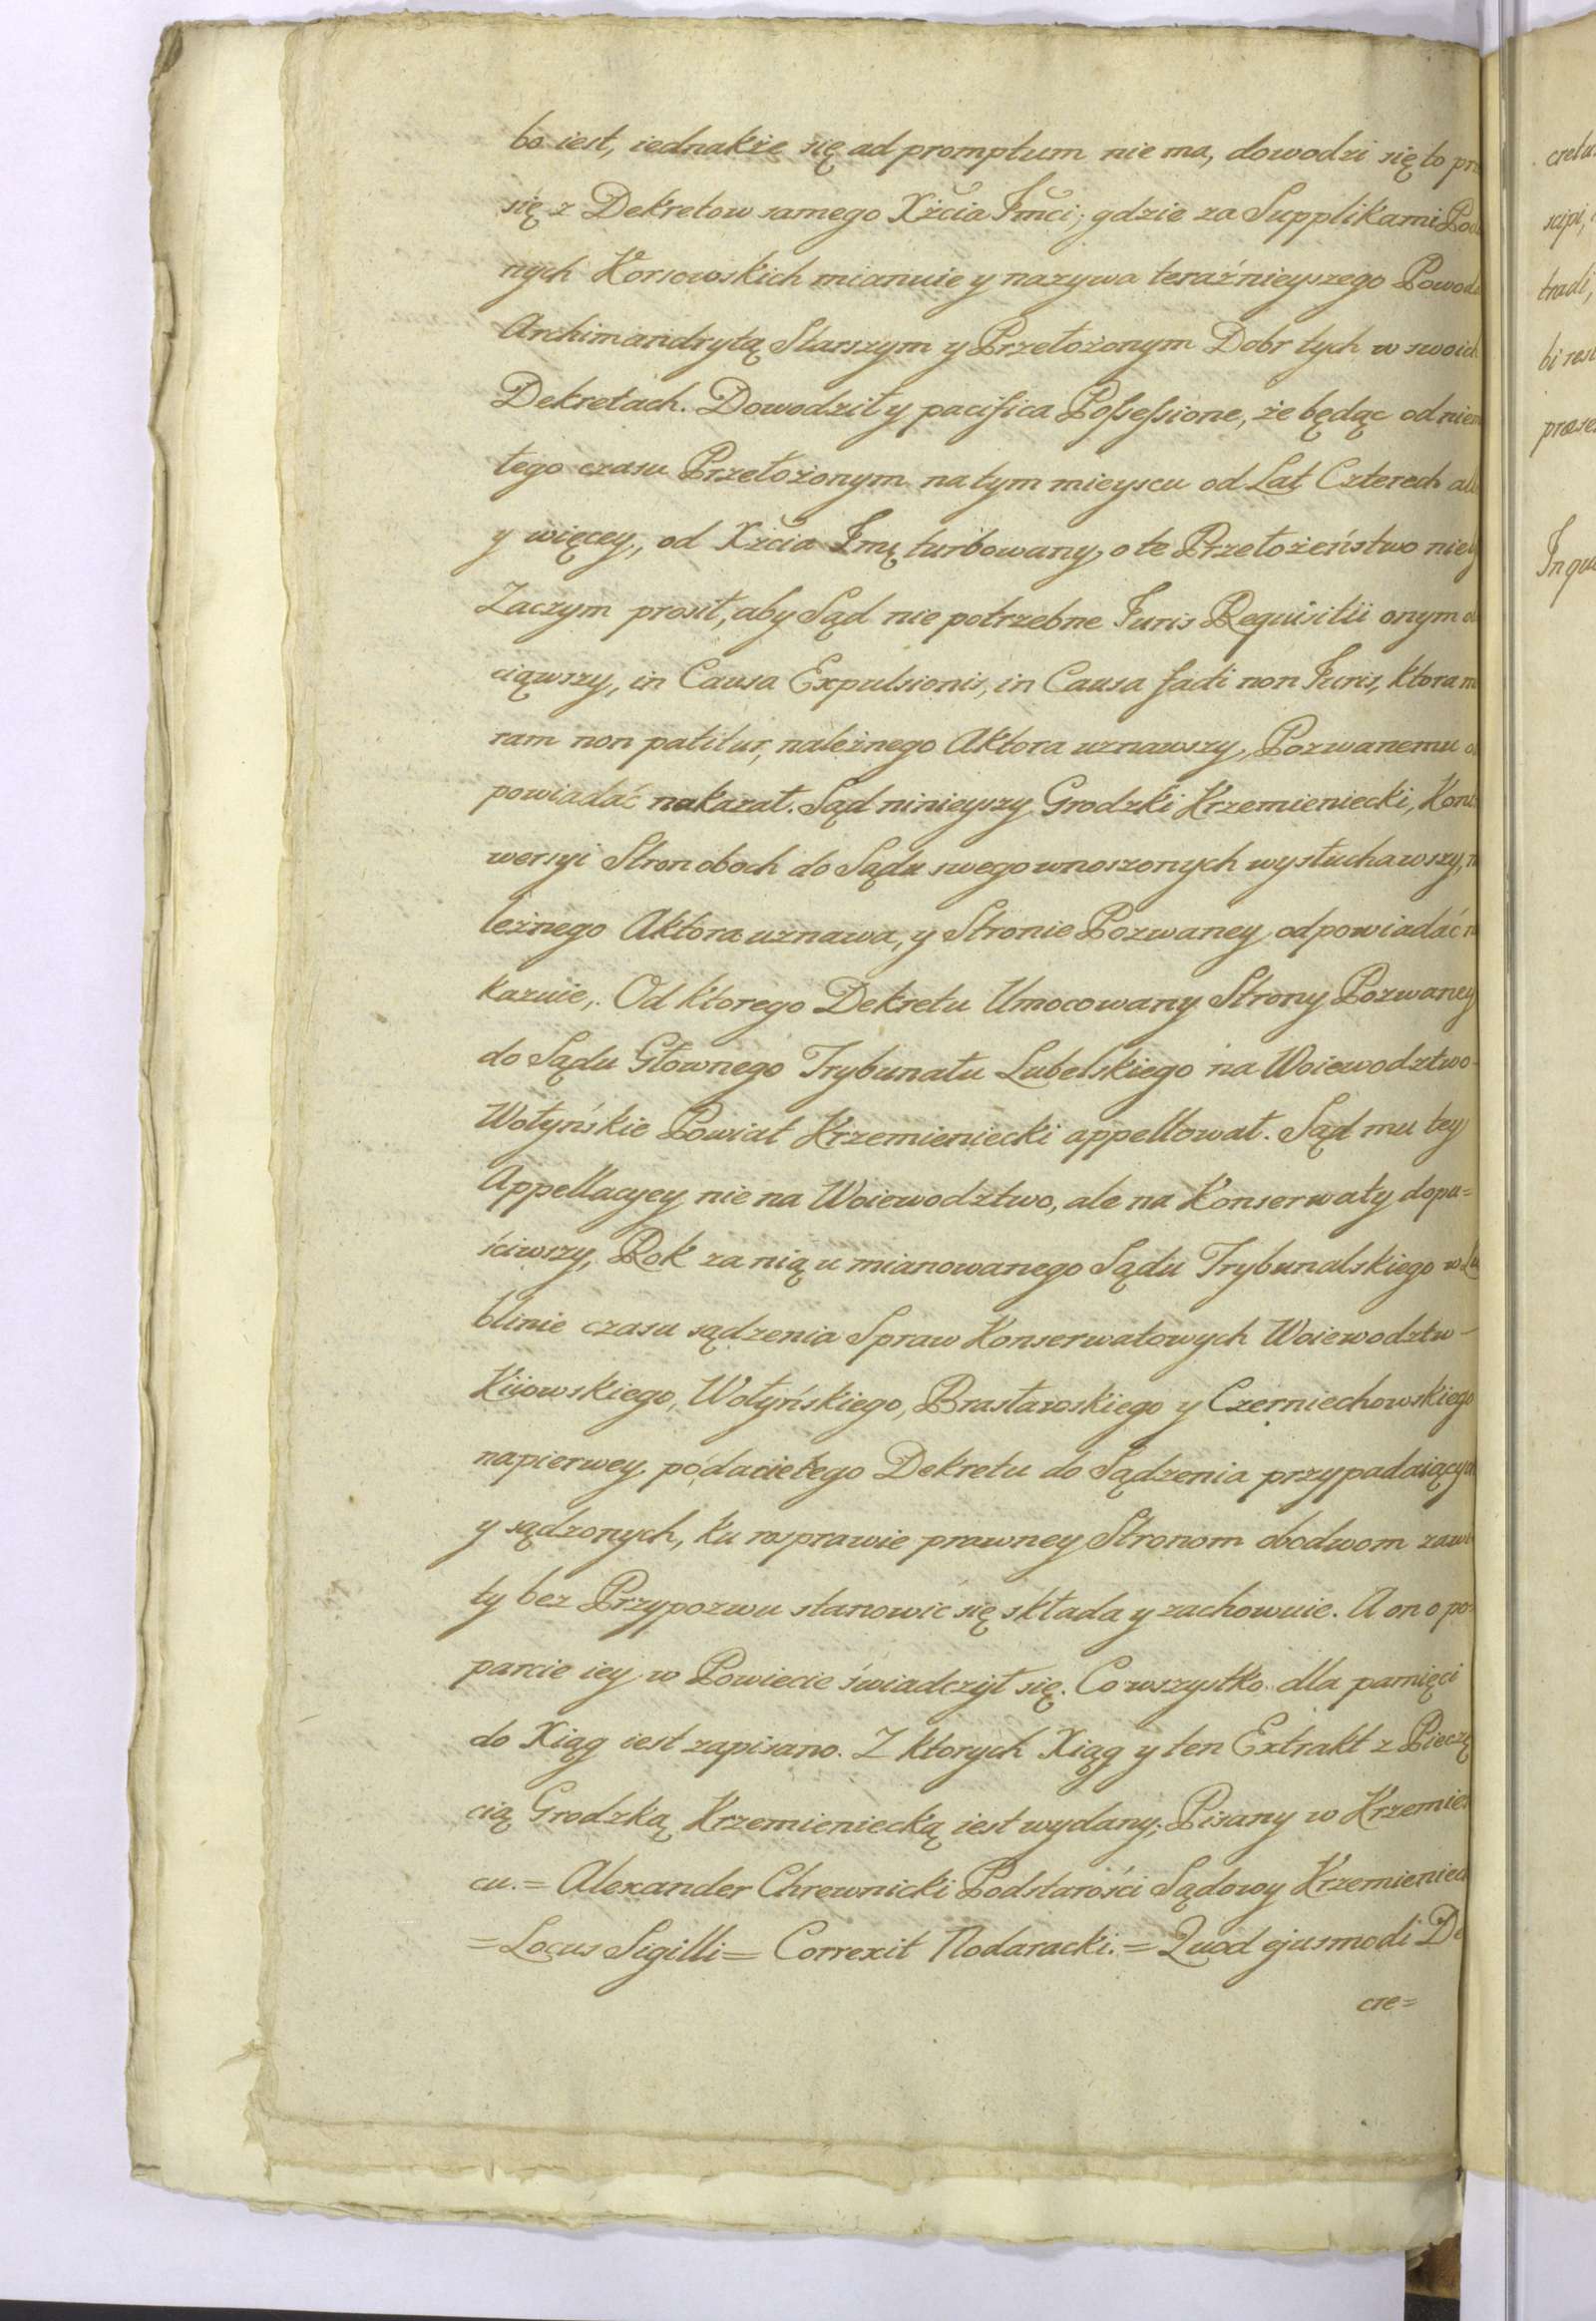 bo iest, iednakże się ad promptum nie ma, dowodzi się to
się z Dekretow samego Xżcia Jmci; gdzie za Supplikami Pod
nych Korsowskich mianuie y nazywa teraźnieyszego Powod
Archimandrytą Starszym y Przełożonym Dobr tych w swoich
Dekretach. Dowodził y pacifica Possessione, że będąc od niem
tego czasu Przełożonym na tym mieyscu od Lat Czterech
y więcey, od Xżcia Jmę turbowany o te Przełożeństwo nie
Zaczym prosił, aby Sąd nie potrzebne Juris Requisitii onym
ciąwszy, in Causa Expulsionis, in Causa facti non Juris, ktora
ram non patitur, należnego Aktora uznawszy, Pozwanemu
powiadać nakazał. Sąd ninieyszy Grodzki Krzemieniecki, Kon
wersyi Stron oboch do Sądu swego wnoszonych wysłuchawszy,
leżnego Aktora uznawa, y Stronie Pozwaney odpowiadać
kazuie, Od ktorego Dekretu Umocowany Strony Pozwaney
do Sądu Głownego Trybunału Lubelskiego na Woiewodztwo
Wołyńskie Powiat Krzemieniecki appellował. Sąd mu tey
Appellacyey nie na Woiewodztwo, ale na Konserwaty dopu=
ściwszy, Rok za nią u mianowanego Sądu Trybunalskiego w Lu
blinie czasu sądzenia Spraw Konserwatowych Woiewodztw –
Kiiowskiego, Wołyńskiego, Brasławskiego y Czerniechowskiego
napierwey po dacie tego Dekretu do Sądzenia przypadaiących
y sądzonych, ku rosprawie prawney Stronom obodwom zawi
ty bez Przypozwu stanowić się składa y zachowuie. A on o po=
parcie iey w Powiecie świadczył się. Co wszystko dla pamięci
do Xiąg iest zapisano. Z ktorych Xiąg y ten Extrakt z Pieczę
cią Grodzką Krzemieniecką iest wydany; Pisany w Krzemień
cu. = Alexander Chrewnicki Podstarości Sądowy Krzemieniec
= Locus Sigilli = Correxit Nodaracki. = Quod ejusmodi De
cre=